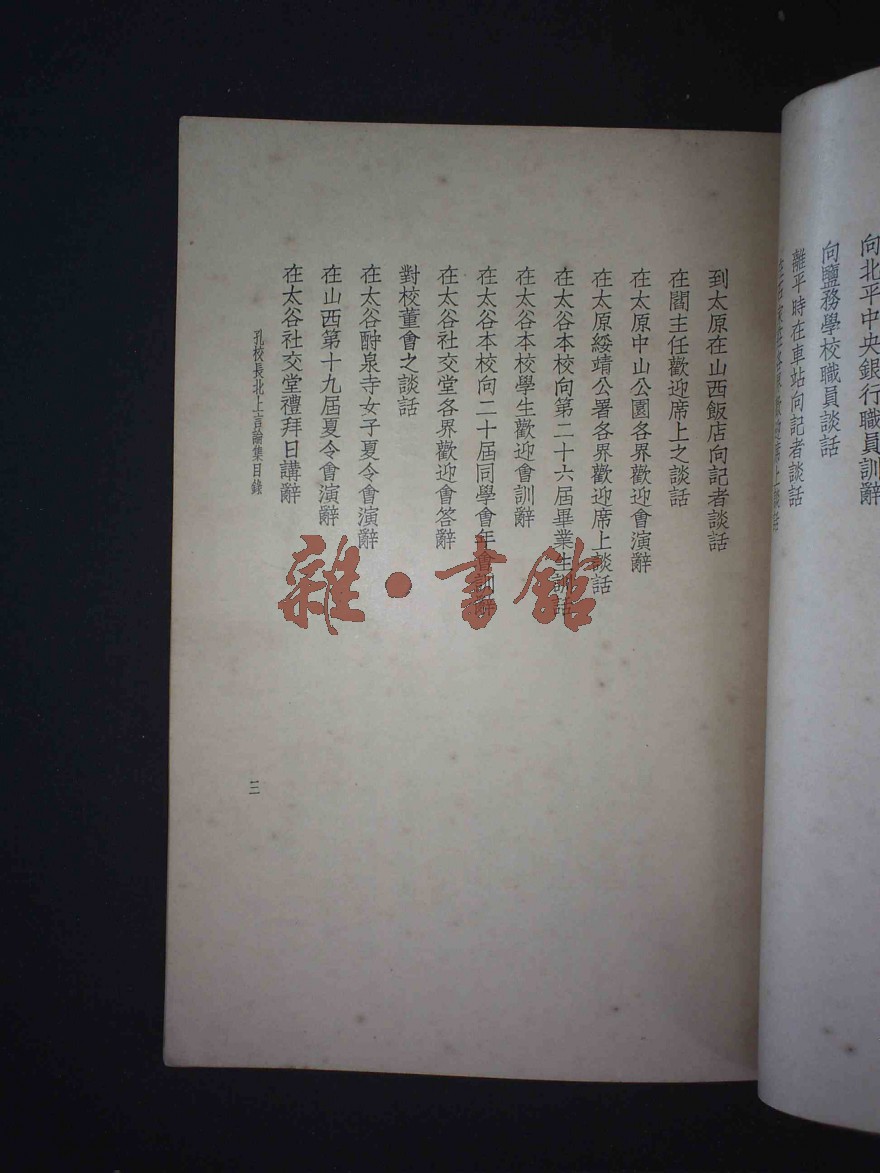 向北平中央銀行職員訓辭
向鹽務學校職員談話
離平時在車站向記者談話
席上談話
到太原在山西飯店向記者談話
在閻主任歡迎席上之談話
在太原中山公園各界歡迎會演辭
在太原綏靖公署各界歡迎席上談話
在太谷本校向第二十六屆畢業生訓話
在太谷本校學生歡迎會訓辭
在太谷本校向二十屆同學會年會訓辭
在太谷社交堂各界歡迎會答辭
對校董會之談話
在太谷酎泉寺女子夏令會演辭
在山西第十九屆夏令會演辭
在太谷社交堂禮拜日講辭
孔校長北上言論集目錄
三
雜·書館